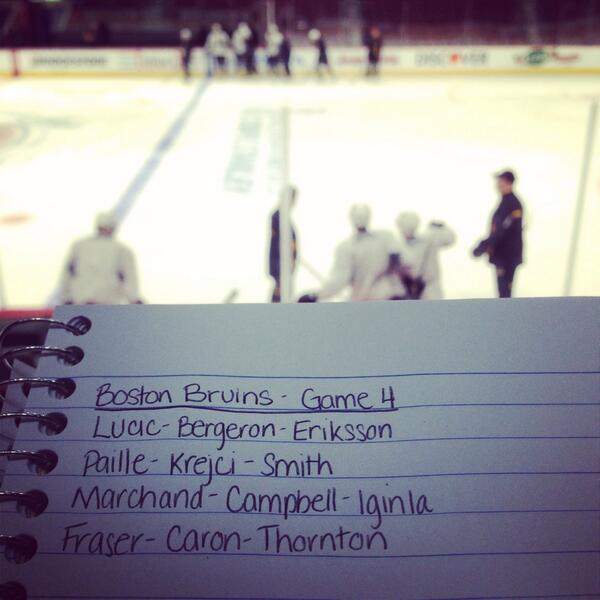 DISCOVER
Boston Bruins - Game 4
Lucic - Bergeron - Eriksson
Paille - Krejci - Smith
Marchand - Campbell - Iginla
Fraser - Caron - Thornton